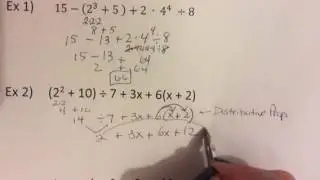 Ex 1) 15 − (2³ + 5) + 2 · 4⁴ ÷ 8
2·2·2
8 + 5
15 − 13 + 2 · 4⁴ ÷ 8
15 − 13 + 64
2 + 64
66
Ex 2) (2² + 10) ÷ 7 + 3x + 6(x + 2)
2·2
4 + 10
14 ÷ 7 + 3x + 6(x + 2) ← Distributive Prop
2 + 3x + 6x + 12